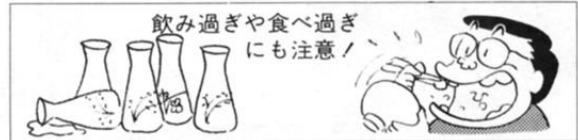 飲み過ぎや食べ過ぎ
にも注意!